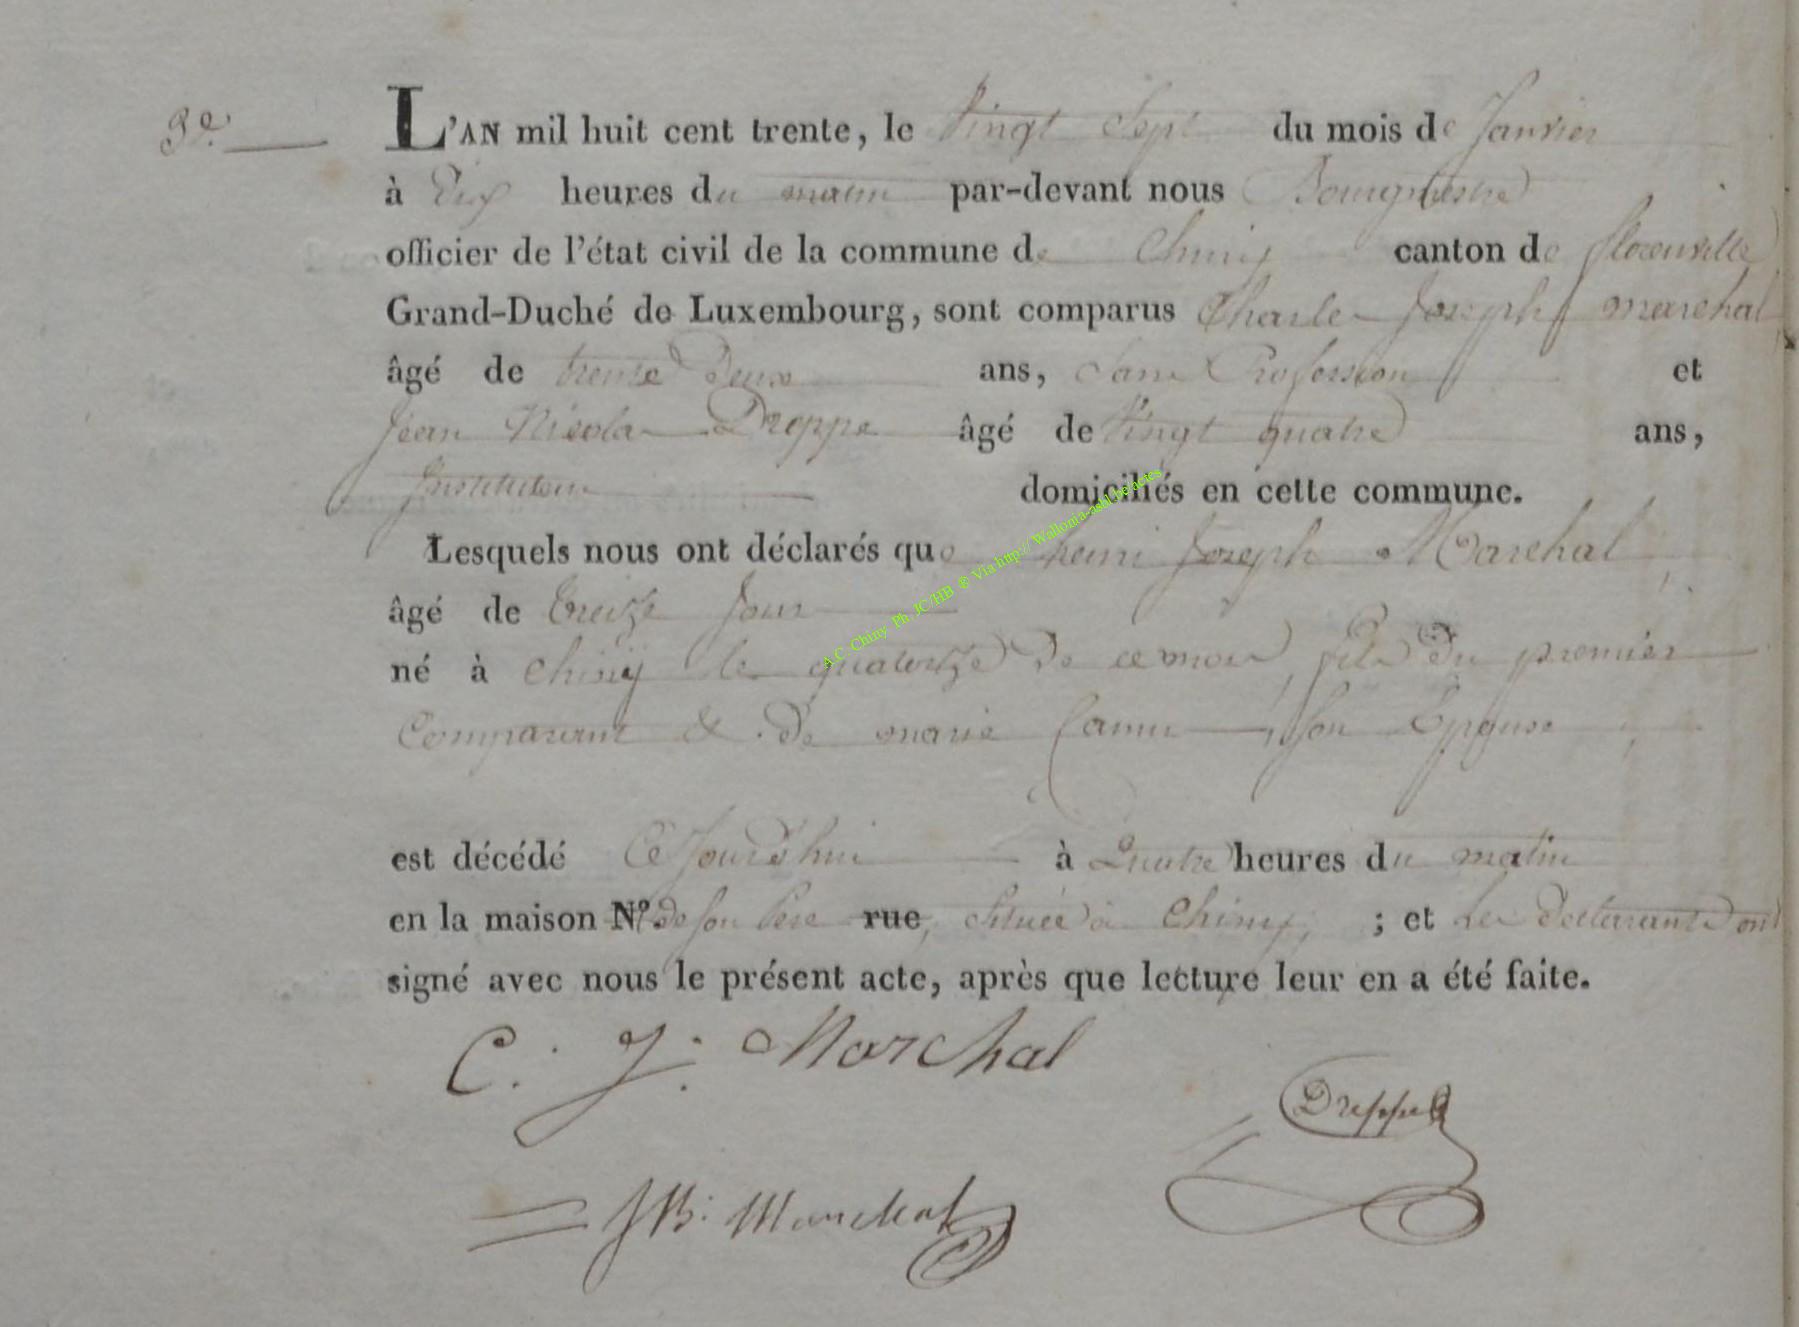 3e. L'AN mil huit cent trente, le Vingt Sept du mois de Janvier
à Dix heures du matin par-devant nous Bourgmestre
officier de l'état civil de la commune de Chiny canton de florenville
Grand-Duché de Luxembourg, sont comparus Charles Joseph marchal
âgé de trente Deux ans, Sans Profession et
Jean Nicolas Dreppe âgé de Vingt quatre ans,
Instituteur domiciliés en cette commune.
Lesquels nous ont déclarés que henri Joseph Marchal,
âgé de treize Jours
né à Chiny le quatorze de ce mois, fils du premier
Comparant & de marie Camus, son Epouse,
est décédé Ce Jourd'hui à Quatre heures du matin
en la maison N.º de son Père rue, Située à Chiny, ; et les declarants ont
signé avec nous le présent acte, après que lecture leur en a été faite.
C. J. Marchal
Dreppe
JB: Marchal
A.C. Chiny Ph. JC/HB ® Via http:// Wallonia-asbl.be/actes